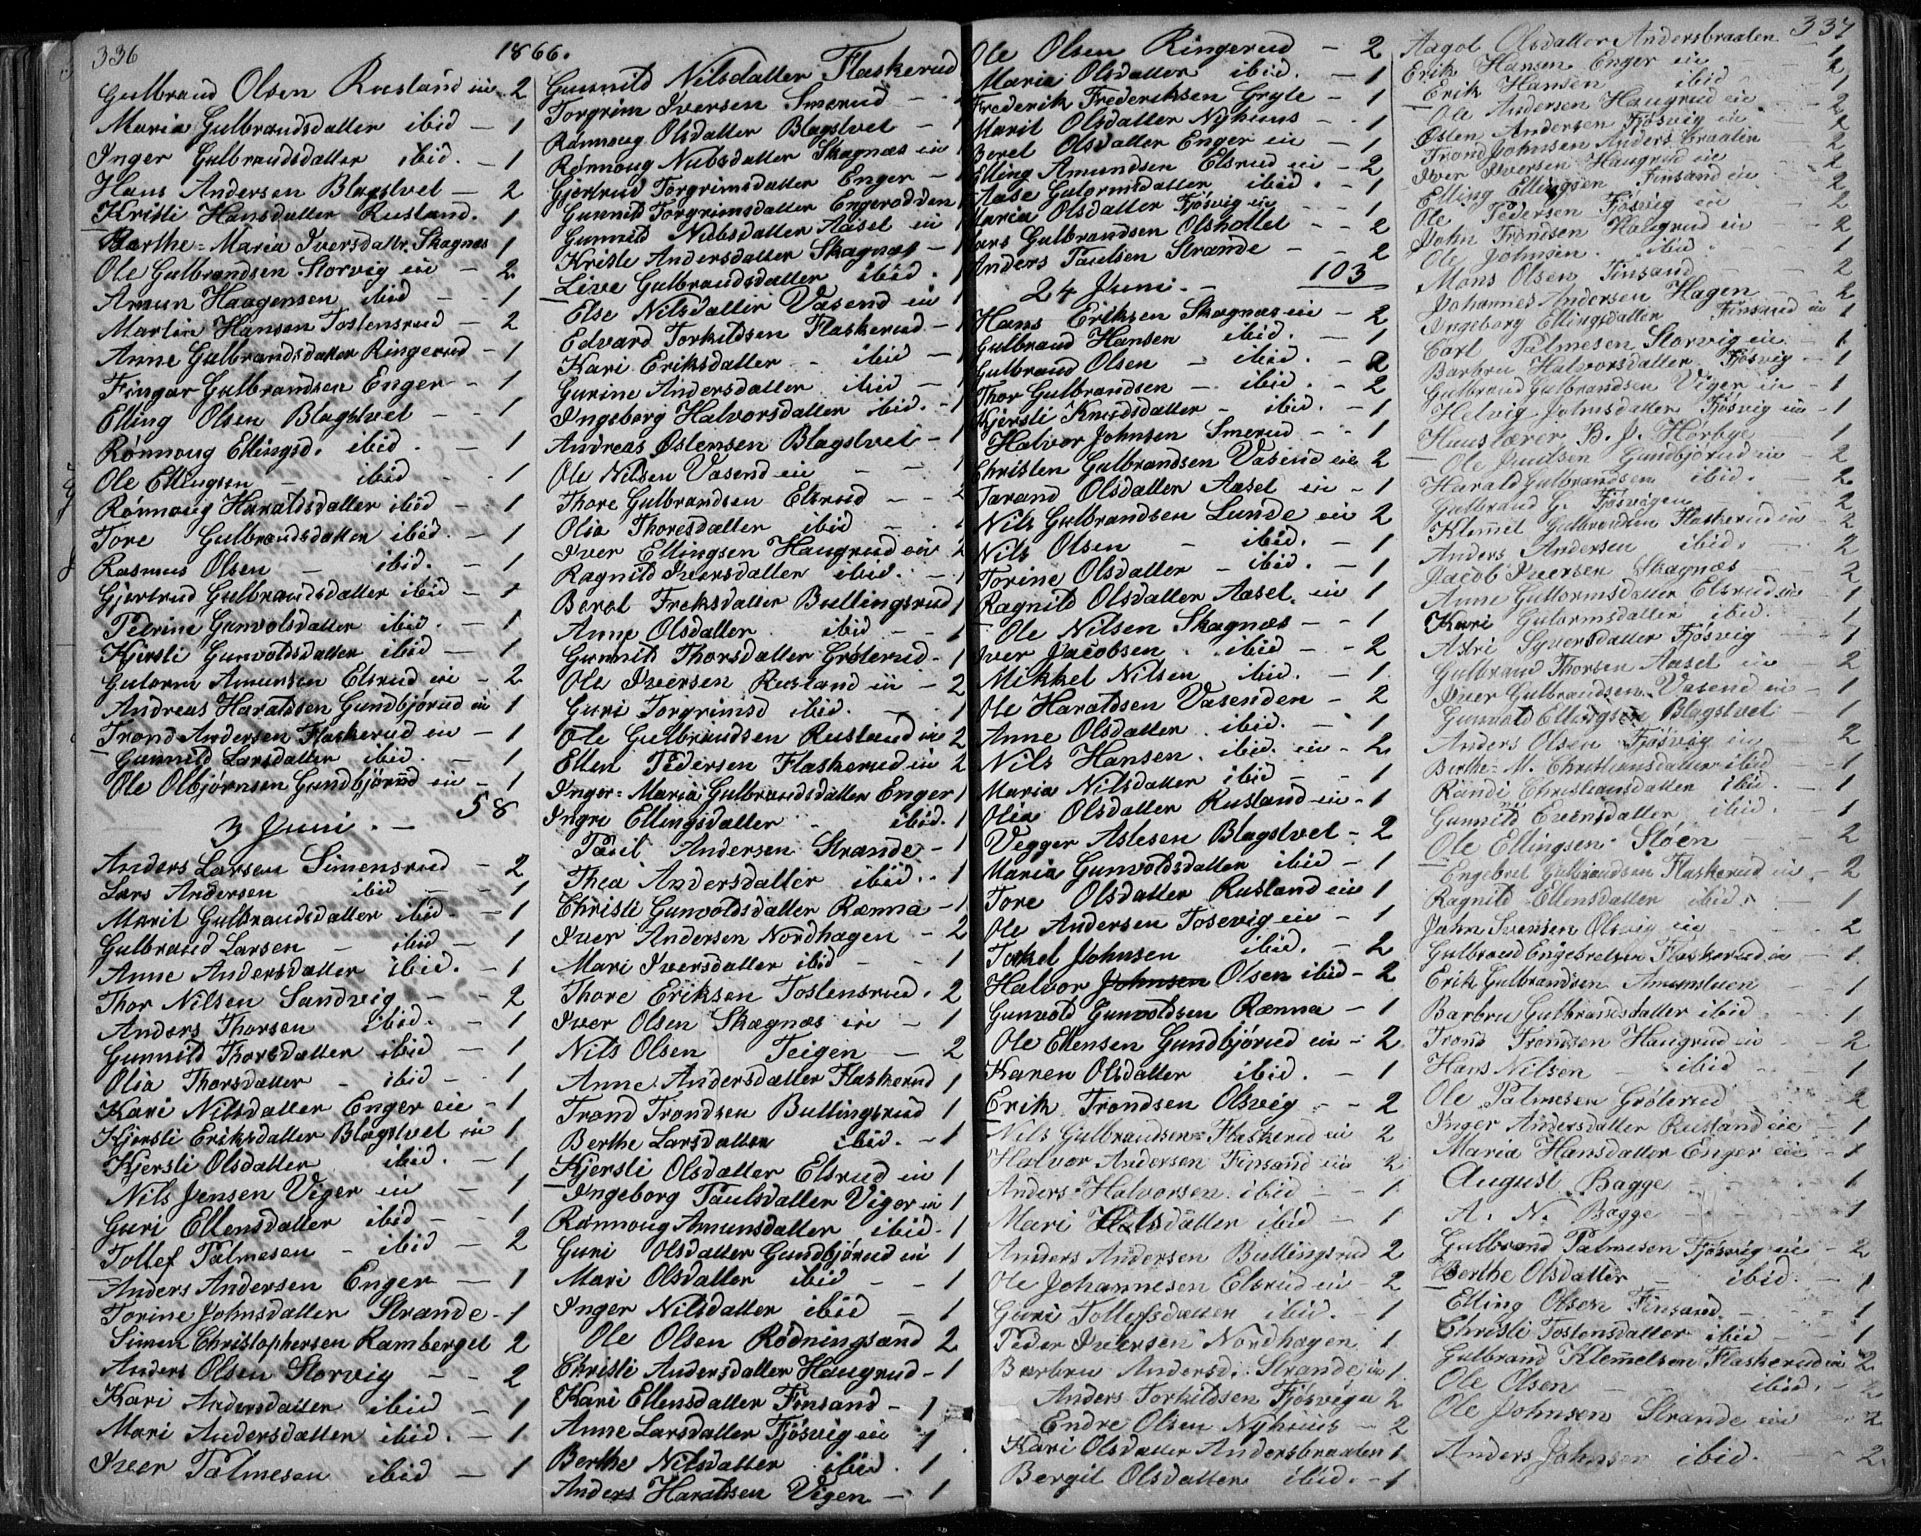 336
1866.
Gulbrand Olsen Rusland ein 2
Maria Gulbrandsdatter ibid - 1
Inger Gulbrandsdatter ibid. - 1
Hans Andersen Blagstvet - 2
Kristi Hansdatter Rusland. 1
Barthe-Maria Iversdatr. Skagnæs 1
Ole Gulbrandsen Storvig ein - 2
Amun Haagensen ibid - - 1
Martin Hansen Tostensrud - 2
Anne Gulbrandsdatter Ringerud - 1
Fingar Gulbrandsen Enger - 1
Elling Olsen Blagstvet - - 1
Rønnoug Ellingsd. ibid. - 1
Ole Ellingsen - ibid - - 1
Rønnoug Haraldsdatter ibid - 1
Tore Gulbrandsdatter ibid. - 1
Rasmus Olsen - ibid. - 1
Gjertrud Gulbrandsdatter ibid - 1
Petrine Gunvolsdatter ibid. - 1
Kjersti Gunvoldsdatter ibid - 1
Gutorm Amunsen Elsrud ein - 2
Andreas Haraldsen Gundbjørud ein 1
Trond Andersen Flaskerud ein - 1
Gunnild Larsdatter ibid. - 1
Ole Olbjørnsen Gundbjørud ein - 1
58
3 Juni. -
Anders Larsen Simensrud - 2
Lars Andersen ibid - - 1
Marit Gulbrandsdatter ibid. - 1
Gulbrand Larsen - ibid - 1
Anne Andersdatter ibid. - 1
Thor Nilsen Sandvig - - 2
Anders Thorsen ibid. - 1
Gunnild Thorsdatter ibid - 1
Olia Thorsdatter - ibid - - 1
Kari Nilsdatter Enger ein - 1
Kjersti Eriksdatter Blagstvet ein 1
Kjersti Olsdatter ibid. - 1
Nils Jensen Viger ein - 1
Guri Ellensdatter ibid - - 1
Tollef Palmesen - ibid - 2
Anders Andersen Enger - 1
Torine Johnsdatter Strande - 1
Simen Christophersen Ramberget 2
Anders Olsen Storvig - - 2
Kari Andersdatter ibid - 1
Mari Andersdatter ibid. - 1
Iver Palmesen ibid - 1
Gunnild Nilsdatter Flaskerud
Torgrim Iversen Smerud -
Rønnoug Olsdatter Blagstvet - 1
Rønnoug Nubsdatter Skagnæs ein 1
Gjertrud Torgrimsdatter Enger - 1
Gunnild Torgrimsdatter Engerodden 1
Gunnild Nubsdatter Aasel ein 1
Kristi Andersdatter Skagnæs - 1
Live Gulbrandsdatter ibid. 1
Else Nilsdatter Vasend ein 1
Edvard Torkildsen Flaskerud - 1
Kari Eriksdatter - ibid - 1
Gurine Andersdatter ibid - 1
Ingeborg Halvorsdatter ibid. - 1
Andreas Østensen Blagstvet - 1
Ole Nilsen Vasend ein - - 1
Thore Gulbrandsen Elsrud - - 2
Olia Thoresdatter ibid - - 1
Iver Ellingsen Haugrud ein 2
Ragnild Iversdatter ibid. - 1
Beret Freksdatter Bullingsrud 1
Anne Olsdatter ibid - - 1
Gunnild Thorsdatter Grøterud - 1
Ole Iversen Rusland ein - 2
Guri Torgrimsd ibid. - 1
Ole Gulbrandsen Rusland ein 2
Ellen Pedersen Flaskerud ein 2
Inger-Maria Gulbrandsdatter Enger 1
Ingri Ellingsdatter - ibid. 1
Taril Andersen Strande - 1
Thea Andersdatter ibid. - 1
Christi Gunvoldsdatter Rænna - 1
Iver Andersen Nordhagen - 2
Mari Iversdatter ibid - - 1
Thore Eriksen Tostensrud. 2
Iver Olsen Skægnæs ein - 1
Nils Olsen Teigen - 2
Anne Andersdatter Flaskerud 1
Trond Trondsen Bullingsrud 1
Berthe Larsdatter ibid. - 1
Kjersti Olsdatter Elsrud ein 1
Ingeborg Paulsdatter Viger ein 1
Rønnoug Amunsdatter ibid. - 1
Guri Olsdatter Gundbjørud ein 1
Mari Olsdatter ibid - - 1
Inger Nilsdatter ibid - 1
Ole Olsen Rødningsand 2
Christi Andersdatter Haugrud - 1
Kari Ellensdatter Finsand - 1
Anne Larsdatter Fjøsvig ein 1
Berthe Nilsdatter ibid. 1
Anders Haraldsen Vigen - 1
Ole Olsen Ringerud - 2
Maria Olsdatter ibid. - 1
Frederik Frederiksen Gryte - 1
Marit Olsdatter Nyhuus - - 1
Beret Olsdatter Enger ein - 1
Elling Amundsen Elsrud ein - 2
Aase Gutormsdatter ibid. - 1
Maria Olsdatter Fjøsvig ein - - 1
Lars Gulbrandsen Olshollet - - 2
Anders Paulsen Strande - 2
103
24 Juni. -
Hans Eriksen Skagnæs ein - 2
Gulbrand Hansen ibid. - 1
Gulbrand Olsen - ibid. - 2
Thor Gulbrandsen - ibid. - 2
Kjersti Knudsdatter - ibid. - 1
Halvor Johnsen Smerud - - 1
Christen Gulbrandsen Vasend ein 2
Tarand Olsdatter Aasel ein - 1
Nils Gulbrandsen Lunde ein 2
Nils Olsen - ibid. - 1
Torine Olsdatter - ibid. - 1
Ragnild Olsdatter Aasel. ein 1
Ole Nilsen Skagnæs - - 1
Iver Jacobsen ibid - - 2
Mikkel Nilsen ibid. - 1
Ole Haraldsen Vasenden - 2
Anne Olsdatter. ibid. - 1
Nils Hansen. ibid. ein - 2
Maria Nilsdatter ibid - - 1
Olia Olsdatter Rusland ein - 1
Vegger Aslesen Blagstvet - 2
Maria Gunvoldsdatter ibid - 1
Tore Olsdatter Rusland ein 1
Ole Andersen Fosevig ein - 1
Torkel Johnsen ibid. - 2
Halvor Johnsen Olsen ibid - 2
Gunvold Gunvoldsen Rænna - 1
Ole Ellensen Gundbjørud ein - 2
Karen Olsdatter ibid. - 1
Erik Trondsen Olsvig - - 2
Nils Gulbrandsen Flaskerud ein 2
Halvor Andersen Finsand ein 2
Anders Halvorsen ibid - 1
Mari Olsdatter ibid - 1
Anders Andersen Bullingsrud 2
Ole Johannesen Elsrud ein - 2
Guri Tollefsdatter ibid. - 1
Peder Iversen Nordhagen 1
Barbru Andersd. Strande ein 1
Anders Torkildsen Fjøsvig ein 2
Endre Olsen Nyhuus - 2
Kari Olsdatter Andersbraaten 1
Bergit Olsdatter ibid. - 1
337
Aagot Olsdatter Andersbraaten 1
Erik Hansen Enger ein - 2
Erik Hansen ibid 1
Ole Andersen Haugrud ein - 2
Østen Andersen Fjøsvig ein - 2
Trond Johnsen Andersbraaten 2
Iver Iversen Haugrud ein 2
Elling Ellingsen Finsand ein 2
Ole Pedersen Fjøsvig ein - 2
John Trondsen Haugrud ein - 2
Ole Johnsen. ibid. 1
Mons Olsen Finsand - 2
Johannes Andersen Hagen - - 2
Ingeborg Ellingsdatter Finsand ein 1
Carl Palmesen Storvig ein. - 1
Barbru Halvorsdatter Fjøsvig - 1
Gulbrand Gulbrandsen Viger ein 1
Helvig Johnsdatter Fjøsvig ein - 1
Huuslærer B. J. Hørbye 1
Ole Juulsen Gundbjørud ein - 2
Harald Gulbrandsen ibid. - 2
Gulbrand G. Fjøsvigen 2
Klemmet Gulbrandsen Flaskerud ein - 2
Anders Andersen ibid. 2
Jacob Iversen Skagnæs - 2
Anne Guttormsdatter Elsrud ein 1
Kari Gutormsdatter ibid. 1
Astri Syversdatter Fjøsvig - 1
Gulbrand Thorsen Aasel ein - 2
Iver Gulbrandsen Vasend ein - 1
Gunvold Ellingsen Blagstvet 1
Anders Olsen Fjøsvig ein 2
Berthe-M. Christiansdatter ibid - 1
Randi Christiansdatter ibid. - 1
Gunnild Evensdatter ibid. 1
Ole Ellingsen Støen 2
Engebret Gulbrandsen Flaskerud ein - 2
Ragnild Ellensdatter ibid. - 1
John Svensen Olsvig ein - 2
Gulbrand Engebretsen Flaskerud ein - 1
Erik Gulbrandsen Amunstuen - 1
Barbru Gulbrandsdatter ibid. 1
Trond Trondsen Haugrud ein - 2
Hans Nilsen - ibid - 1
Ole Palmesen Grøterud - 2
Inger Andersdatter Rusland ein - 1
Maria Hansdatter Enger ein - 1
August Bagge - - 1
A. N. Bagge - - 1
Gulbrand Palmesen Fjøsvig ein - 2
Berthe Olsdatter - ibid. - 1
Elling Olsen Finsand. - - 1
Christi Tostensdatter ibid - 1
Gulbrand Klemetsen Flaskerud ein 2
Ole Olsen - ibid. - 2
Ole Johnsen Strande ein - 2
Anders Johnsen ibid. - 2